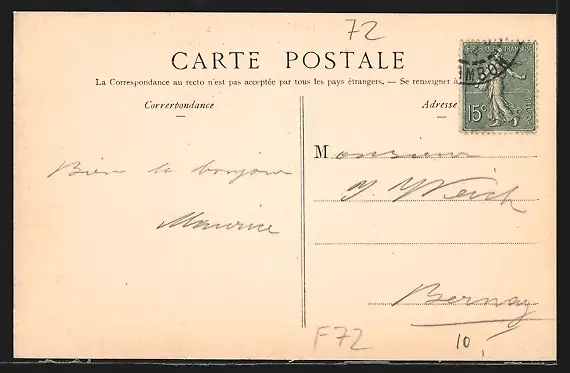 72
CARTE POSTALE
La Correspondance au recto n'est pas acceptée par tous les pays étrangers. — Se renseigner à
Correspondance
Adresse
RÉPUBLIQUE FRANÇAISE
15c
POSTES
Bien le bonjour
Maurice
Monsieur
Bernay
F72
10,